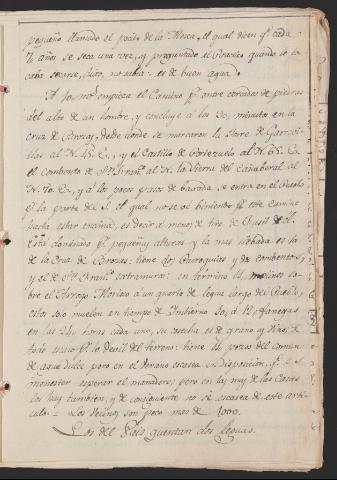 pequeño llamado el pozo de la Nieta, el qual dicen q.e cada
7 años se seca una vez, y preguntado el Vecino quando se a
caba secarse, dixo, no sabia: es de buen agua.
A 10, m.s empieza el Camino p.r entre cercados de piedras
del alto de un hombre, y concluye a los 20, minutos en la
cruz de Brozas, desde donde se marcaron la Torre de Garrovi-
llas al N. 45. E., y el Castillo de Portezuelo al N. 65. E.
el Combento de S.n Fran.co al N. la Sierra del Cañaberal al
N. 70. E., y a los pocos pasos de baxada se entra en el Pueblo
p.r la parte del S. el qual no se vé biniendo p.r este camino
hasta estar encima, es decir a menos de tiro de fusil de el.
está dominado p.r pequeñas alturas y la mas elebada es la
de la Cruz de Brozas: tiene dos Parroquias y dos combentos,
y el de S.n Fran.co extramuros: en termino 14, molinos so-
bre el Arroyo Morisco a un quarto de legua largo del Pueblo,
estos solo muelen en tiempo de Imbierno 10, á 12, fanegas
en las 24, horas cada uno, su cosecha es de grano y vino, de
todo escaso p.r lo devil del terreno: tiene 14 pozos del comun
de agua dulce pero en el Verano escasea en disposicion, q.e es
menester esperar el manadero; pero en las mas de las Casas
los hay tambien, y de consiguiente no se escasea de este arti-
culo. Los Vecinos son poco mas de 1000.
Los del Pais quentan dos leguas.